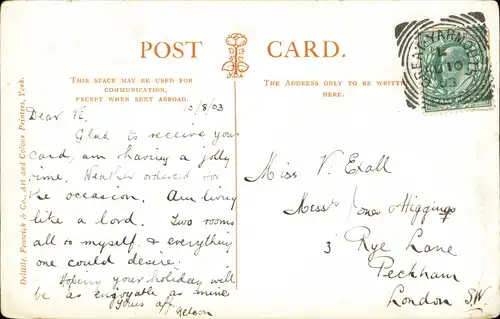 POST CARD.
THIS SPACE MAY BE USED FOR
COMMUNICATION,
EXCEPT WHEN SENT ABROAD.
THE ADDRESS ONLY TO BE WRITTEN
HERE.
10/8/03
Dear Vi.
Glad to receive your
card, am having a jolly
time. Weather ordered for
the occasion. Am living
like a lord. Two rooms
all to myself, & everything
one could desire.
Hoping your holiday will
be as enjoyable as mine
Yours aff
Nelson
Miss V. Exall
Messrs Jones & Higgins
3 Rye Lane
Peckham
London S.W.
Delittle, Fenwick & Co., Art and Colour Printers, York.
GREAT YARMOUTH